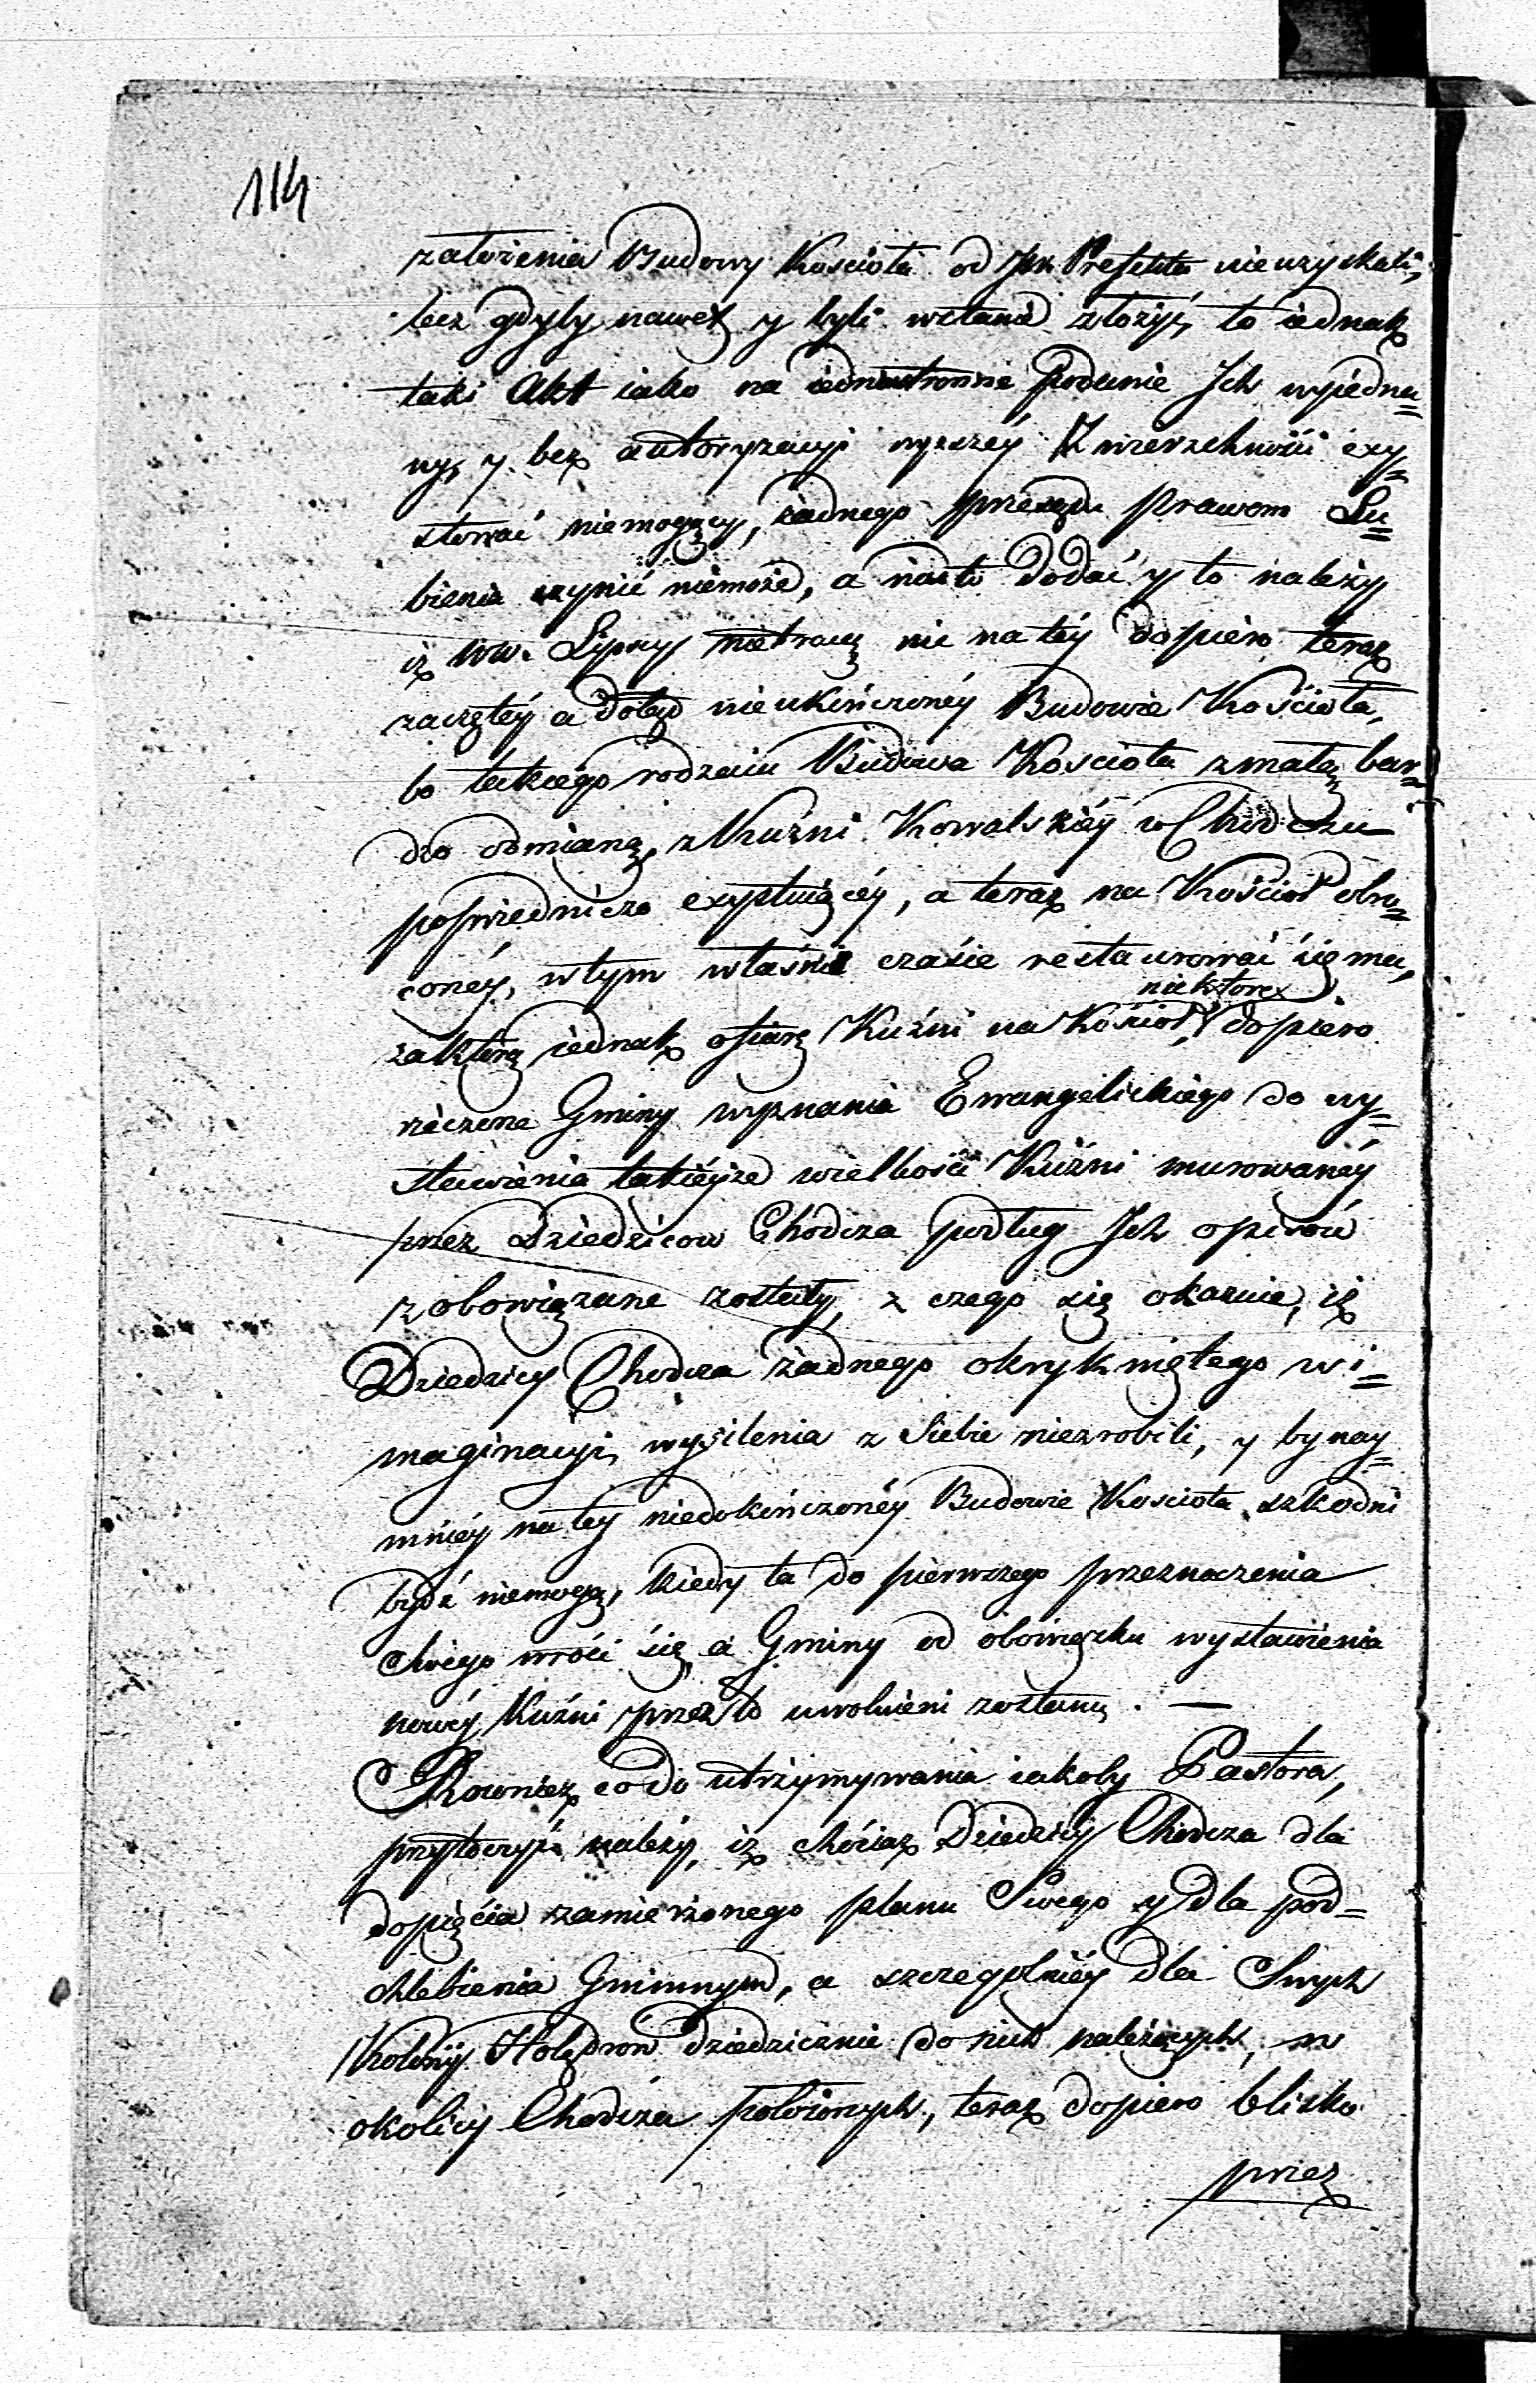 114
założenia Budowy Kościoła od JW Prefekta nieuzyskali,
lecz gdyby nawet y byli wstanie złożyć, to iednak
taki Akt iako na iednostronne podanie Ich wyiedna=
ny, y bez autoryzacyi wyższey Zwierzchności exy=
stować niemogący, żadnego przesądu prawom Lu=
bienia czynić niemoże, a nadto dodać y to należy
iż WW. Lipscy nietracą nic na téy dopiero teraz
zaczętéy a dotąd nieukończonéy Budowie Kościoła,
bo takiego rodzaiu Budowa Kościoła zmałą bar=
dzo odmianą, z Kuźni Kowalskiéy w Chodczu
poprzedniczo exystuiącéy, a teraz na Kościoł obró=
conéy, wtym właśnie czasie restaurować się ma,
zaktórą iednak ofiarę Kuźni na Kościoł, niektóre dopiero
rzeczone Gminy wyznania Ewangelickiego do wy=
stawienia takiéyże wielkości Kuźni murowanéy
przez Dziedziców Chodcza podług Ich opisów
zobowiązane zostały, z czego się okazuie, iż
Dziedzicy Chodcza żadnego okrzykniętego w i=
maginacyi, wysilenia z Siebie niezrobili, y bynay=
mniéy na tey niedokończonéy Budowie Kościoła szkodni
bydź niemogą, kiedy ta do pierwszego przeznaczenia
swego wróci się, a Gminy od obowiązku wystawienia
nowéy Kuźni przez to uwolnieni zostaną. —
Rownież co do utrzymywania iakoby Pastora,
przytoczyć należy, iż chociaż Dziedzicy Chodcza dla
dopięcia zamierzonego planu Swego y dla pod=
chlebienia Gminnym, a szczególniéy dla Swych
Kolonij Holędrów dziedzicznie do nich należących, w
okolicy Chodcza położonych, teraz dopiero blisko
przez